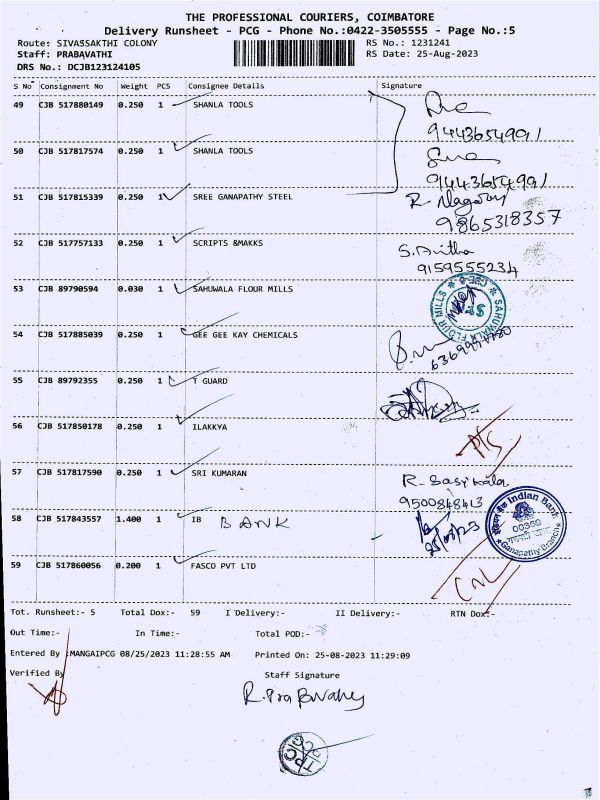 THE PROFESSIONAL COURIERS, COIMBATORE
Delivery Runsheet - PCG - Phone No.:0422-3505555 - Page No.:5
Route: SIVASSAKTHI COLONY
RS No.: 1231241
Staff: PRABAVATHI
RS Date: 25-Aug-2023
DRS No.: DCJB123124105
S No Consignment No Weight PCS Consignee Details Signature
49 CJB 517880149 0.250 1 SHANLA TOOLS
9443654991
50 CJB 517817574 0.250 1 SHANLA TOOLS
9443654991
51 CJB 517815339 0.250 1 SREE GANAPATHY STEEL R. Nagaraj
9865318357
52 CJB 517757133 0.250 1 SCRIPTS &MAKKS S. Anitha
9159555234
53 CJB 89790594 0.030 1 SAHUWALA FLOUR MILLS
SAHUWALA FLOUR MILLS
54 CJB 517885039 0.250 1 GEE GEE KAY CHEMICALS
55 CJB 89792355 0.250 1 T GUARD
56 CJB 517850178 0.250 1 ILAKKYA
57 CJB 517817590 0.250 1 SRI KUMARAN R. Sasikala
9500848413
58 CJB 517843557 1.400 1 IB BANK
Indian Bank
00369
Ganapathy Branch
59 CJB 517860056 0.200 1 FASCO PVT LTD
CNL
Tot. Runsheet:- 5 Total Dox:- 59 I Delivery:- II Delivery:- RTN Dox:-
Out Time:- In Time:- Total POD:-
Entered By :MANGAIPCG 08/25/2023 11:28:55 AM Printed On: 25-08-2023 11:29:09
Verified By Staff Signature
R. Prabavathy